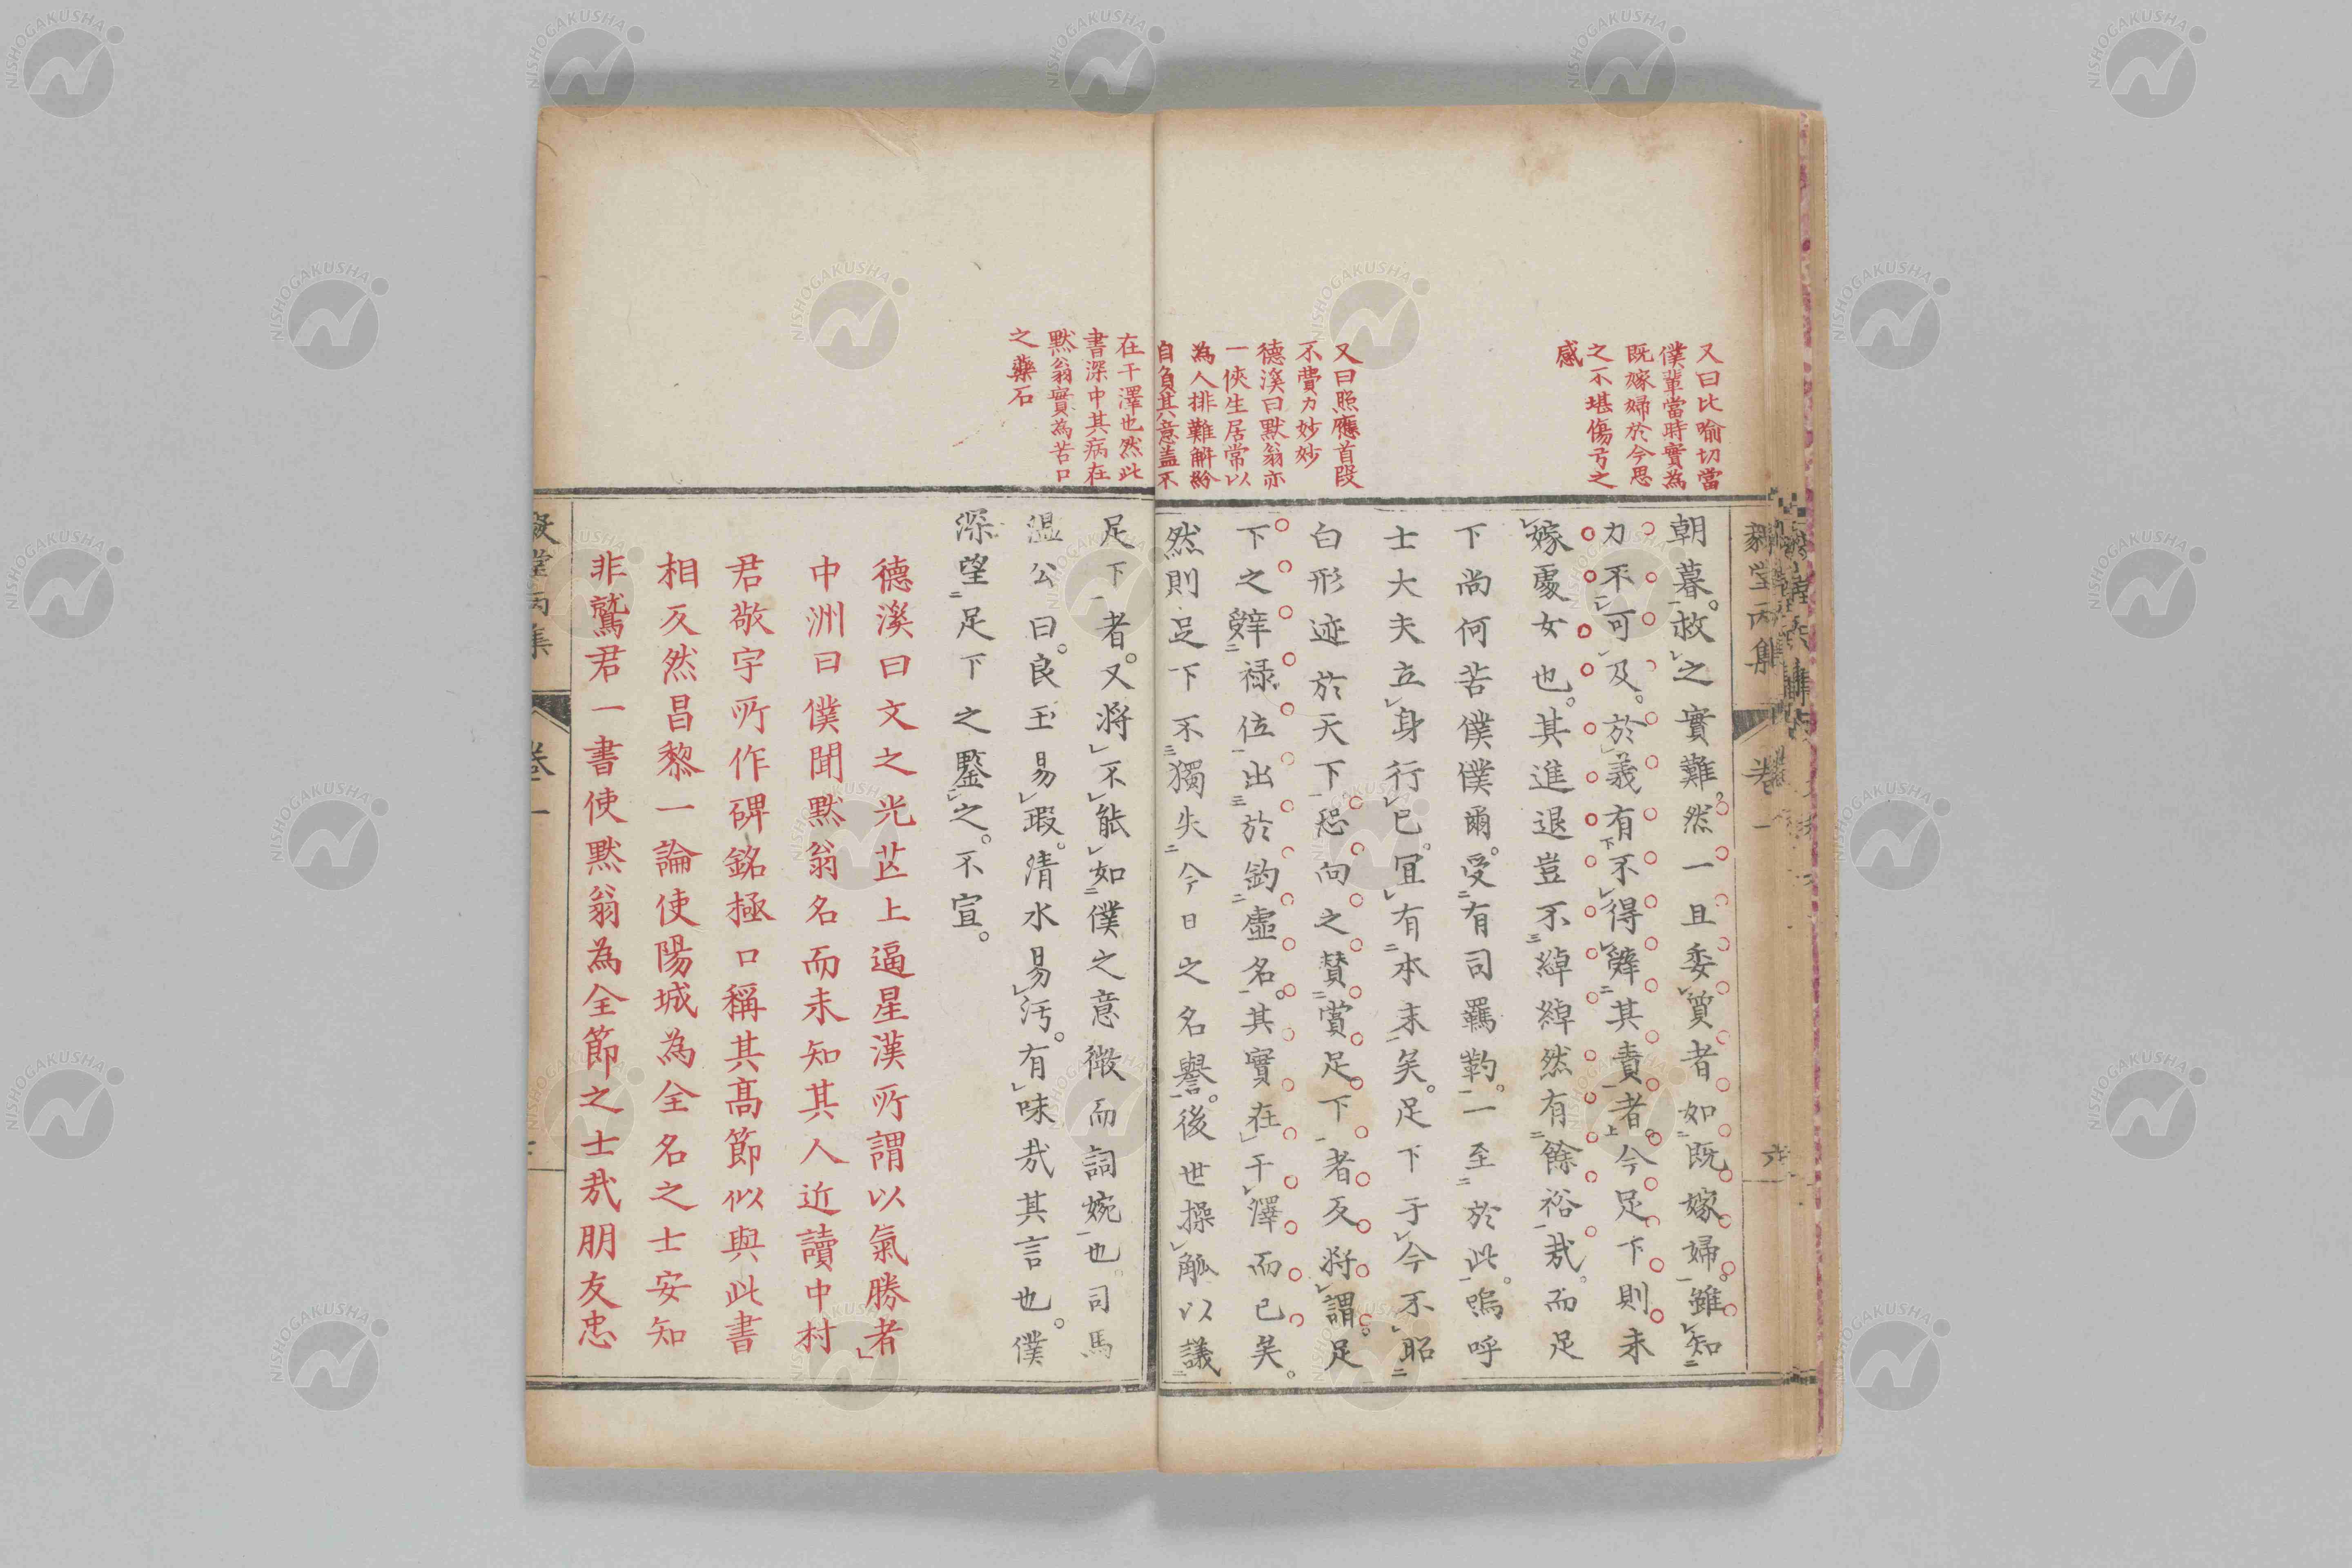 又曰比喻切當
僕輩當時實為
既嫁婦於今思
之不堪傷亐之
感
又曰照應首段
不費力妙妙
德溪曰默翁亦
一俠生居常以
為人排難解紛
自負其意蓋不
朝暮。救之實難。然一旦委質者如既嫁婦。雖知
力不可及。於義有不得辭其責者。今足下則未
嫁處女也。其進退豈不綽綽然有餘裕哉。而足
下尚何苦僕僕爾。受有司羈靮。一至於此。嗚呼
士大夫立身行已。冝有本末矣。足下于今不昭
白形迹於天下。恐向之賛賞足下者反將謂。足
下之辤祿位出於釣虛名。其實在干澤而已矣。
然則足下不獨失今日之名譽。後世操觚以議
毅堂丙集 卷一 六
在干澤也然此
書深中其病在
默翁實為苦口
之藥石
足下者。又將不能如僕之意微而詞婉也。司馬
溫公曰。良玉易瑕。清水易汚。有味哉其言也。僕
深望足下之鑒之。不宣。
德溪曰文之光芒上逼星漢所謂以氣勝者
中洲曰僕聞默翁名而未知其人近讀中村
君敬宇所作碑銘極口稱其高節似與此書
相反然昌黎一論使陽城為全名之士安知
非鷲君一書使默翁為全節之士哉朋友忠
毅堂丙集 卷一
NISHOGAKUSHA